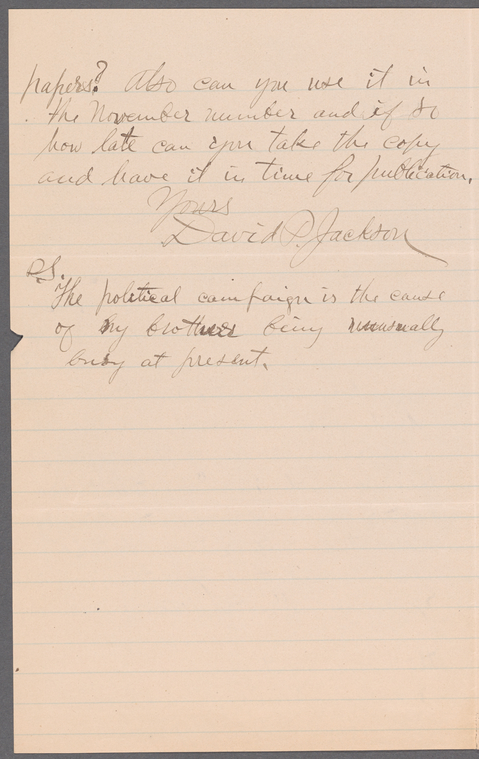 papers? Also can you use it in
the November number and if so
how late can you take the copy
and have it in time for publication.
Yours
David P. Jackson
P.S.
The political campaign is the cause
of my brother being unusually
busy at present.